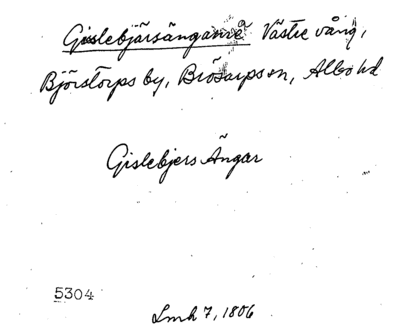 Gislebjärsängarne Västre vång,
Björstorps by, Brösarps sn, Albo hd
Gislebjers Ängar
5304
Lmh 7, 1806